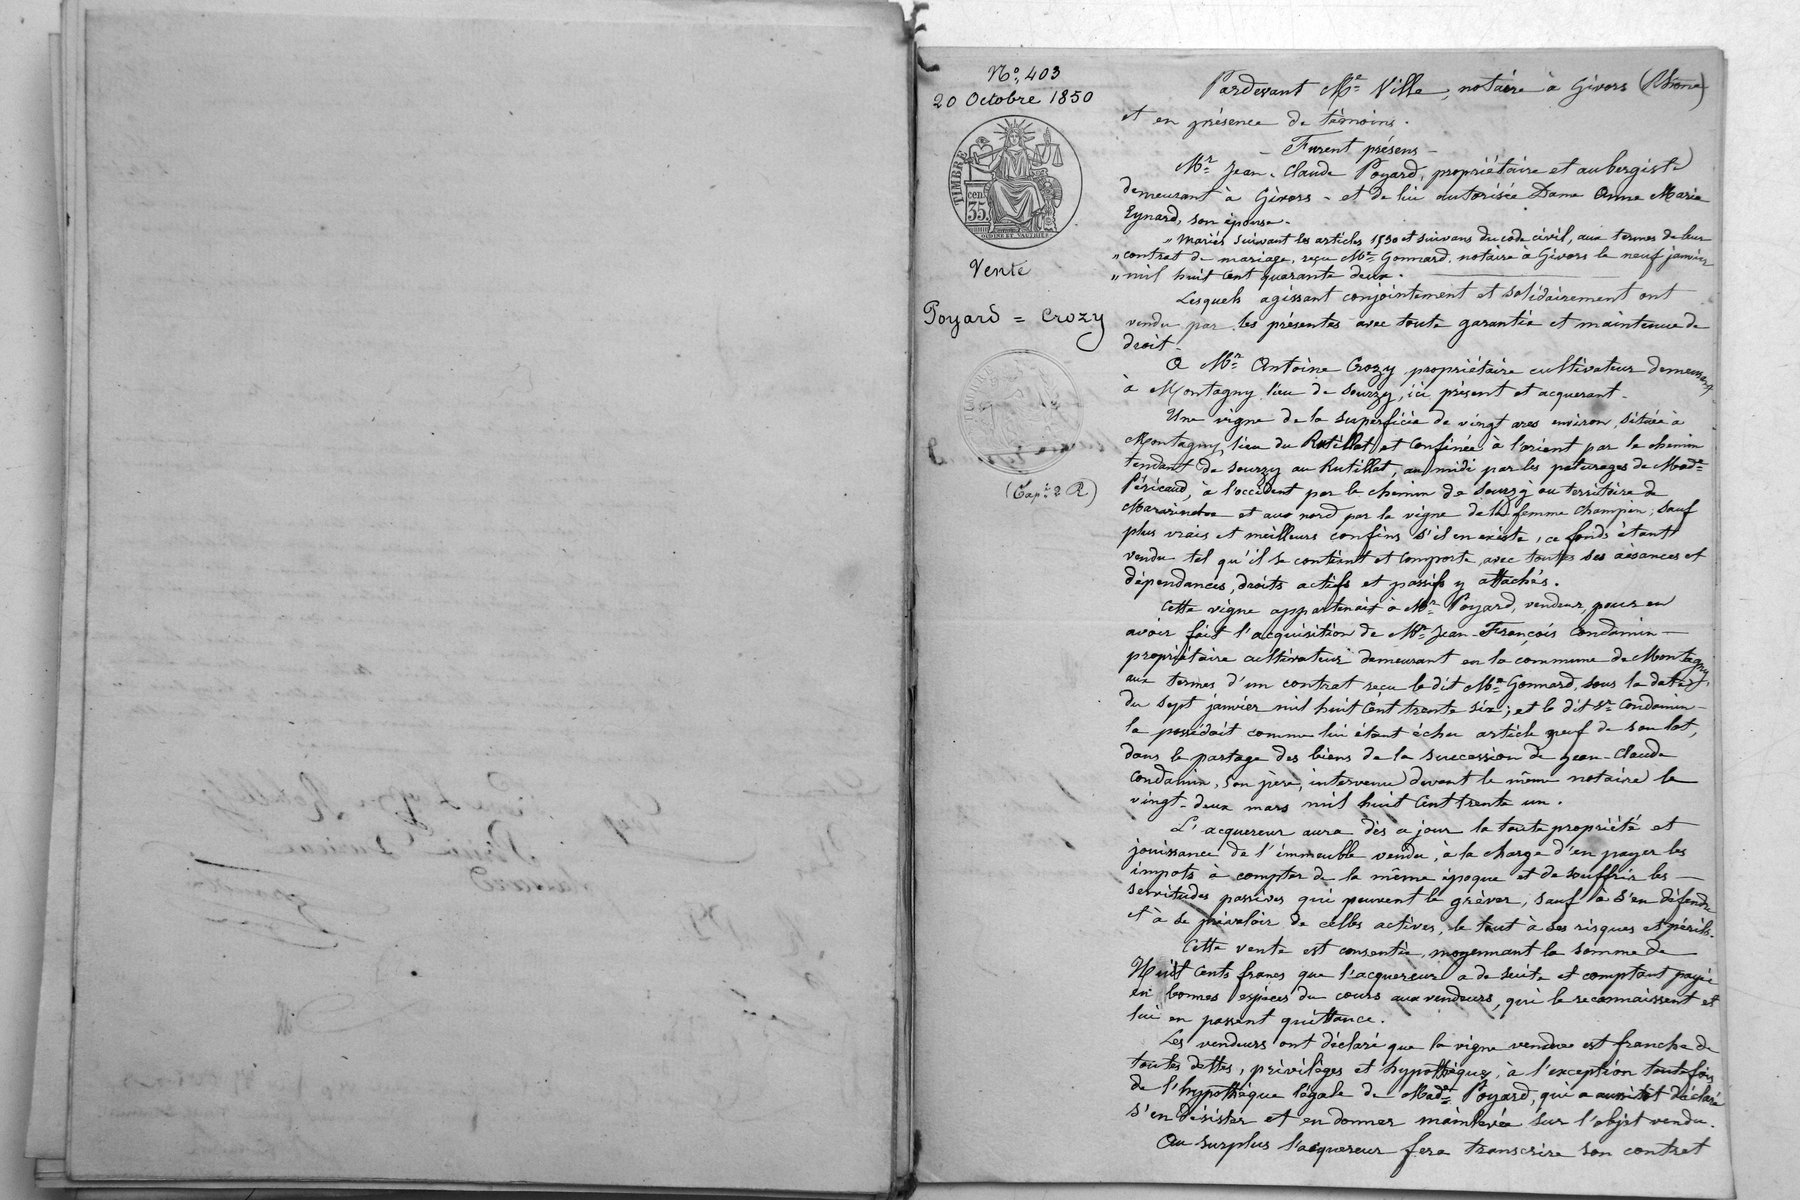 N.° 403
20 Octobre 1850
TIMBRE
cen.
35
Vente
Poyard = Crozy
(Cap.e 2 R)
Pardevant Me Ville, notaire à Givors (Rhône)
et en présence de témoins.
– Furent présens –
Mr Jean-Claude Poyard, propriétaire et aubergiste
demeurant à Givors – et de lui autorisée Dame Anne Marie
Eynard, son épouse.
" Mariés suivant les articles 1530 et suivans du code civil, aux termes de leur
" contrat de mariage, reçu Me Gonnard, notaire à Givors le neuf janvier
" mil huit cent quarante deux.
Lesquels agissant conjointement et solidairement ont
vendu par les présentes avec toute garantie et maintenue de
droit
A Mr Antoine Crozy propriétaire cultivateur demeurant
à Montagny lieu de Sourzy, ici présent et acquerant.
Une vigne de la superficie de vingt ares environ, située à
Montagny, lieu du Rutillat, et confinée à l'orient par le chemin
tendant de Sourzy au Rutillat, au midi par les paturages de Made
Péricaud, à l'occident par le chemin de Sourzy au territoire de
et au nord par la vigne de la femme Champin; sauf
plus vrais et meilleurs confins s'il en existe, ce fonds étant
vendu tel qu'il se contient et comporte, avec toutes ses aisances et
dépendances, droits actifs et passifs y attachés.
Cette vigne appartenait à Mr Poyard, vendeur, pour en
avoir fait l'acquisition de Mr Jean-François Condamin –
propriétaire cultivateur demeurant en la commune de Montagny,
aux termes d'un contrat reçu le dit Me Gonnard, sous la date
du sept janvier mil huit cent trente six; et le dit Sr Condamin –
la possédait comme lui étant échue article neuf de son lot,
dans le partage des biens de la succession de Jean-Claude
Condamin, son père, intervenu devant le même notaire le
vingt-deux mars mil huit cent trente un.
L'acquereur aura dès ce jour la toute propriété et
jouissance de l'immeuble vendu, à la charge d'en payer les
impots à compter de la même époque et de souffrir les –
servitudes passives qui peuvent le grèver, sauf à s'en défendre
et à se prévaloir de celles actives, le tout à ses risques et périls.
Cette vente est consentie, moyennant la somme de
Huit cents francs que l'acquereur a de suite et comptant payé
en bonnes espèces du cours aux vendeurs, qui le reconnaissent et
lui en passent quittance.
Les vendeurs ont déclaré que la vigne vendue est franche de
toutes dettes, privilèges et hypothèques, à l'exception toutefois
de l'hypothèque légale de Made Poyard, qui a aussitot déclaré
s'en désister et en donner mainlevée sur l'objet vendu.
Au surplus l'acquereur fera transcrire son contrat